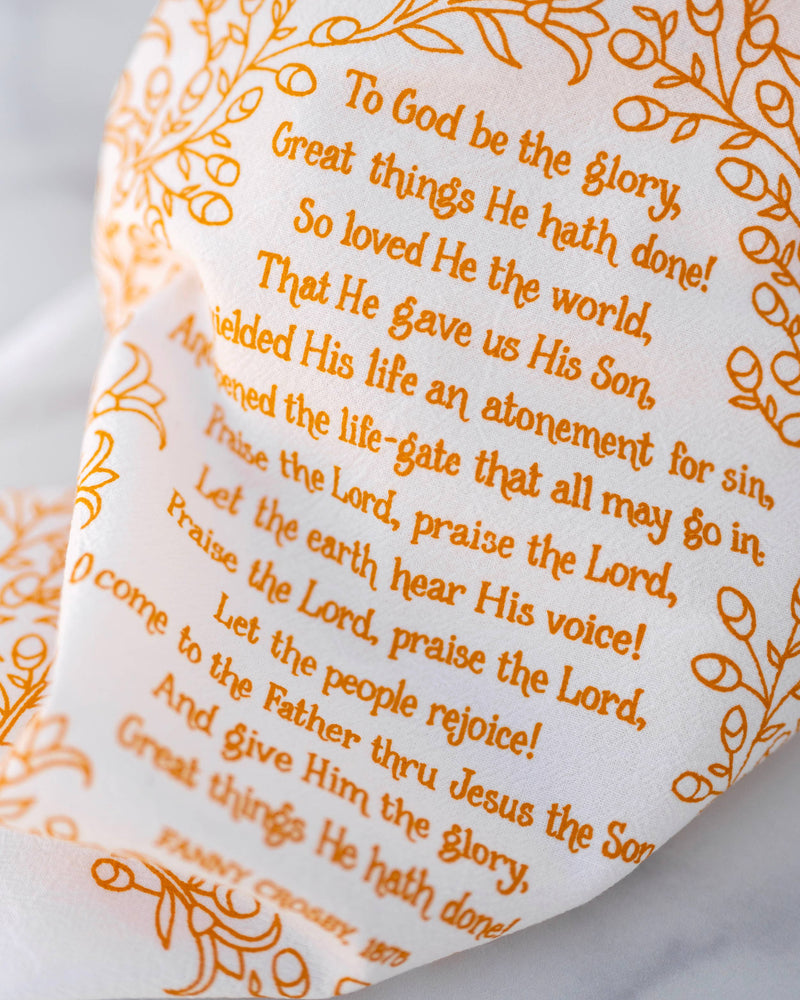 To God be the glory,
Great things He hath done!
So loved He the world,
That He gave us His Son,
ielded His life an atonement for sin,
An pened the life-gate that all may go in.
Praise the Lord, praise the Lord,
Let the earth hear His voice!
Praise the Lord, praise the Lord,
Let the people rejoice!
O come to the Father thru Jesus the Son
And give Him the glory,
Great things He hath done!
FANNY CROSBY, 1875